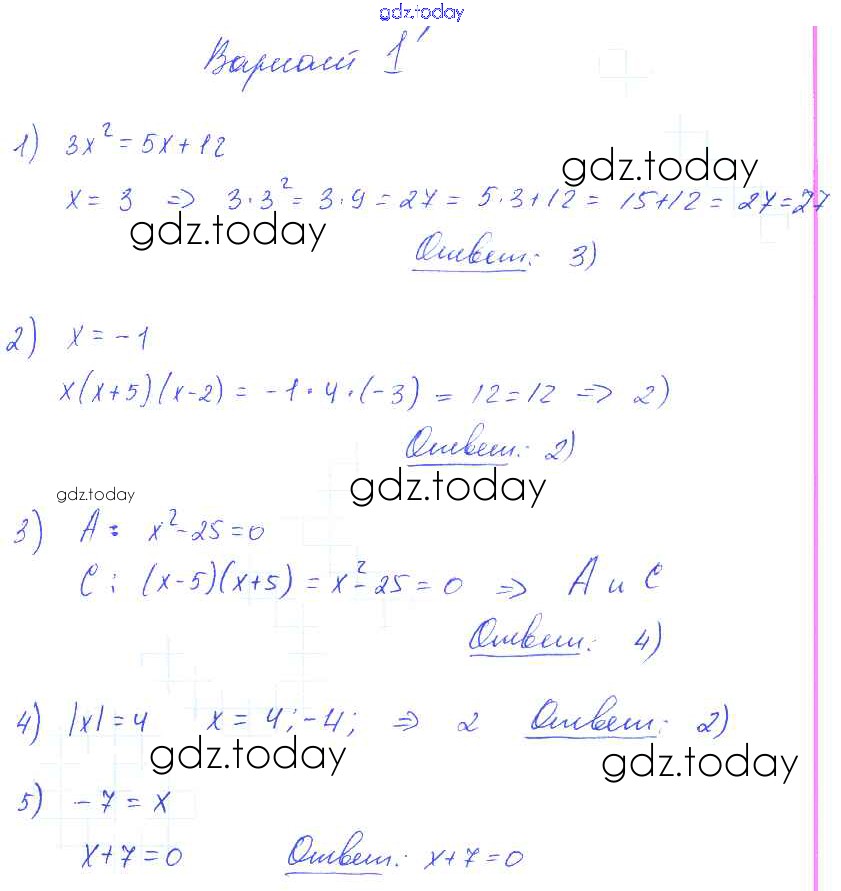 gdz.today
Вариант 1'
1) 3x² = 5x + 12
gdz.today
x = 3 => 3·3² = 3·9 = 27 = 5·3+12 = 15+12 = 27 = 27
gdz.today
Ответ: 3)
2) x = -1
x(x+5)(x-2) = -1·4·(-3) = 12 = 12 => 2)
Ответ: 2)
gdz.today
gdz.today
3) A: x² - 25 = 0
C: (x-5)(x+5) = x² - 25 = 0 => A и C
Ответ: 4)
4) |x| = 4 x = 4; -4; => 2 Ответ: 2)
gdz.today
gdz.today
5) -7 = x
x+7 = 0 Ответ: x+7 = 0